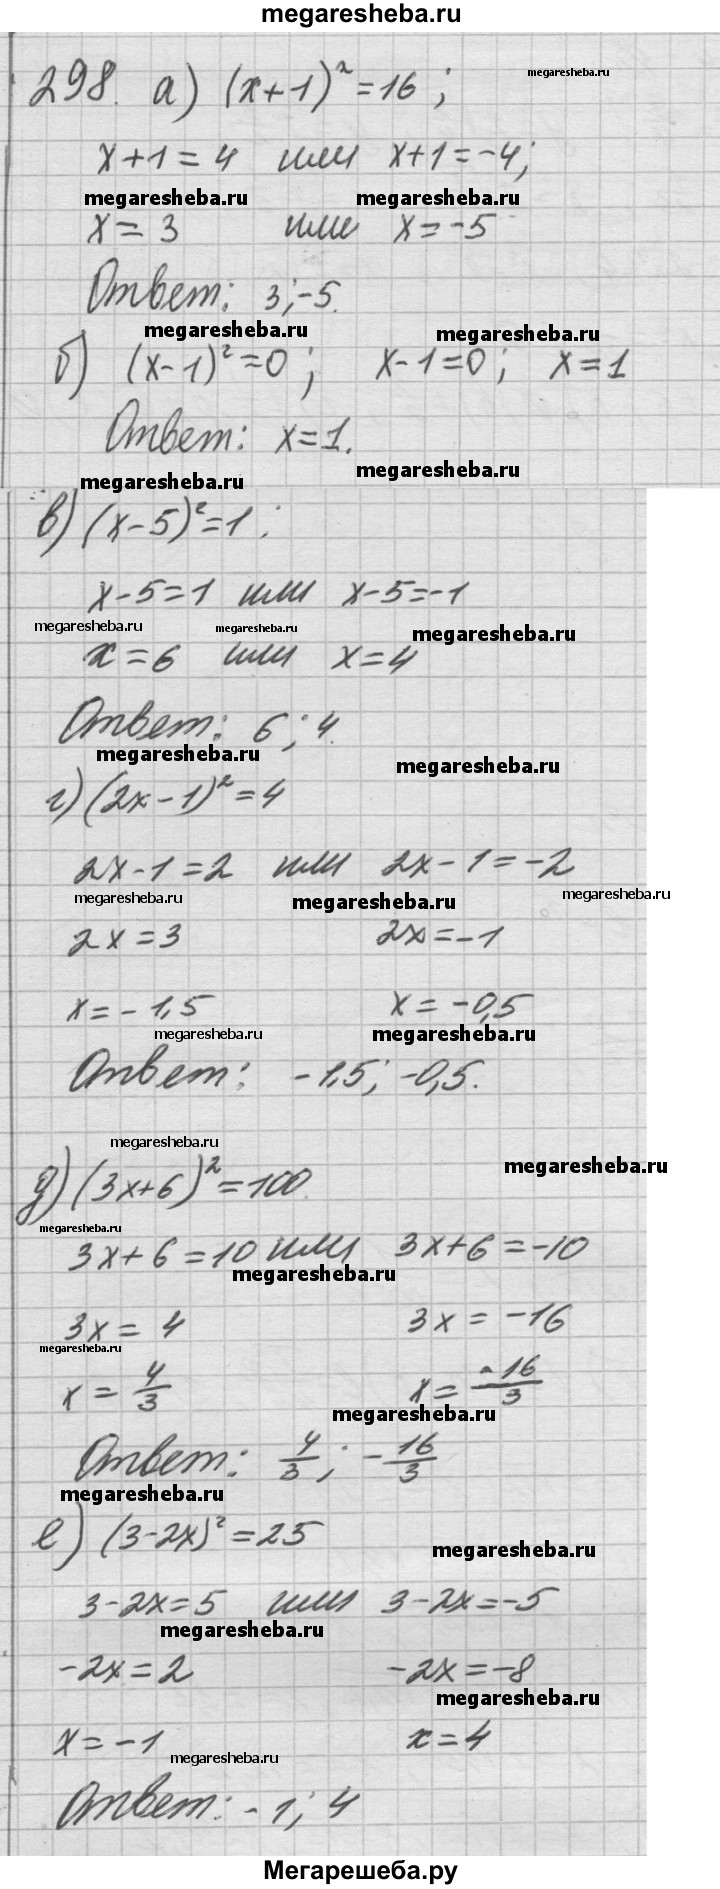 megaresheba.ru
298. а) (x+1)² = 16 ;
megaresheba.ru
x+1 = 4 или x+1 = -4;
megaresheba.ru megaresheba.ru
x = 3 или x = -5
Ответ: 3; -5.
megaresheba.ru megaresheba.ru
б) (x-1)² = 0 ; x-1=0 ; x=1
Ответ: x=1.
megaresheba.ru megaresheba.ru
в) (x-5)² = 1 ;
x-5=1 или x-5=-1
megaresheba.ru megaresheba.ru megaresheba.ru
x = 6 или x = 4
Ответ: 6 ; 4.
megaresheba.ru megaresheba.ru
г) (2x-1)² = 4
2x-1 = 2 или 2x-1 = -2
megaresheba.ru megaresheba.ru megaresheba.ru
2x = 3 2x = -1
x = -1,5 x = -0,5
megaresheba.ru megaresheba.ru
Ответ: -1,5; -0,5.
megaresheba.ru megaresheba.ru
д) (3x+6)² = 100.
megaresheba.ru
3x+6 = 10 или 3x+6 = -10
megaresheba.ru
3x = 4 3x = -16
megaresheba.ru
x = 4/3 x = -16/3
megaresheba.ru
Ответ: 4/3 ; -16/3
megaresheba.ru
е) (3-2x)² = 25
megaresheba.ru
3-2x = 5 или 3-2x = -5
megaresheba.ru
-2x = 2 -2x = -8
megaresheba.ru
x = -1 x = 4
megaresheba.ru
Ответ: -1; 4
Мегарешеба.ру